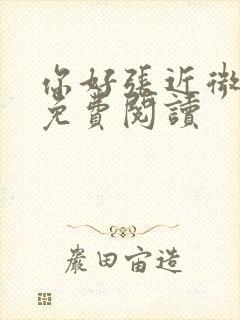 你好張近微
免費閱讀
嚴田宙造